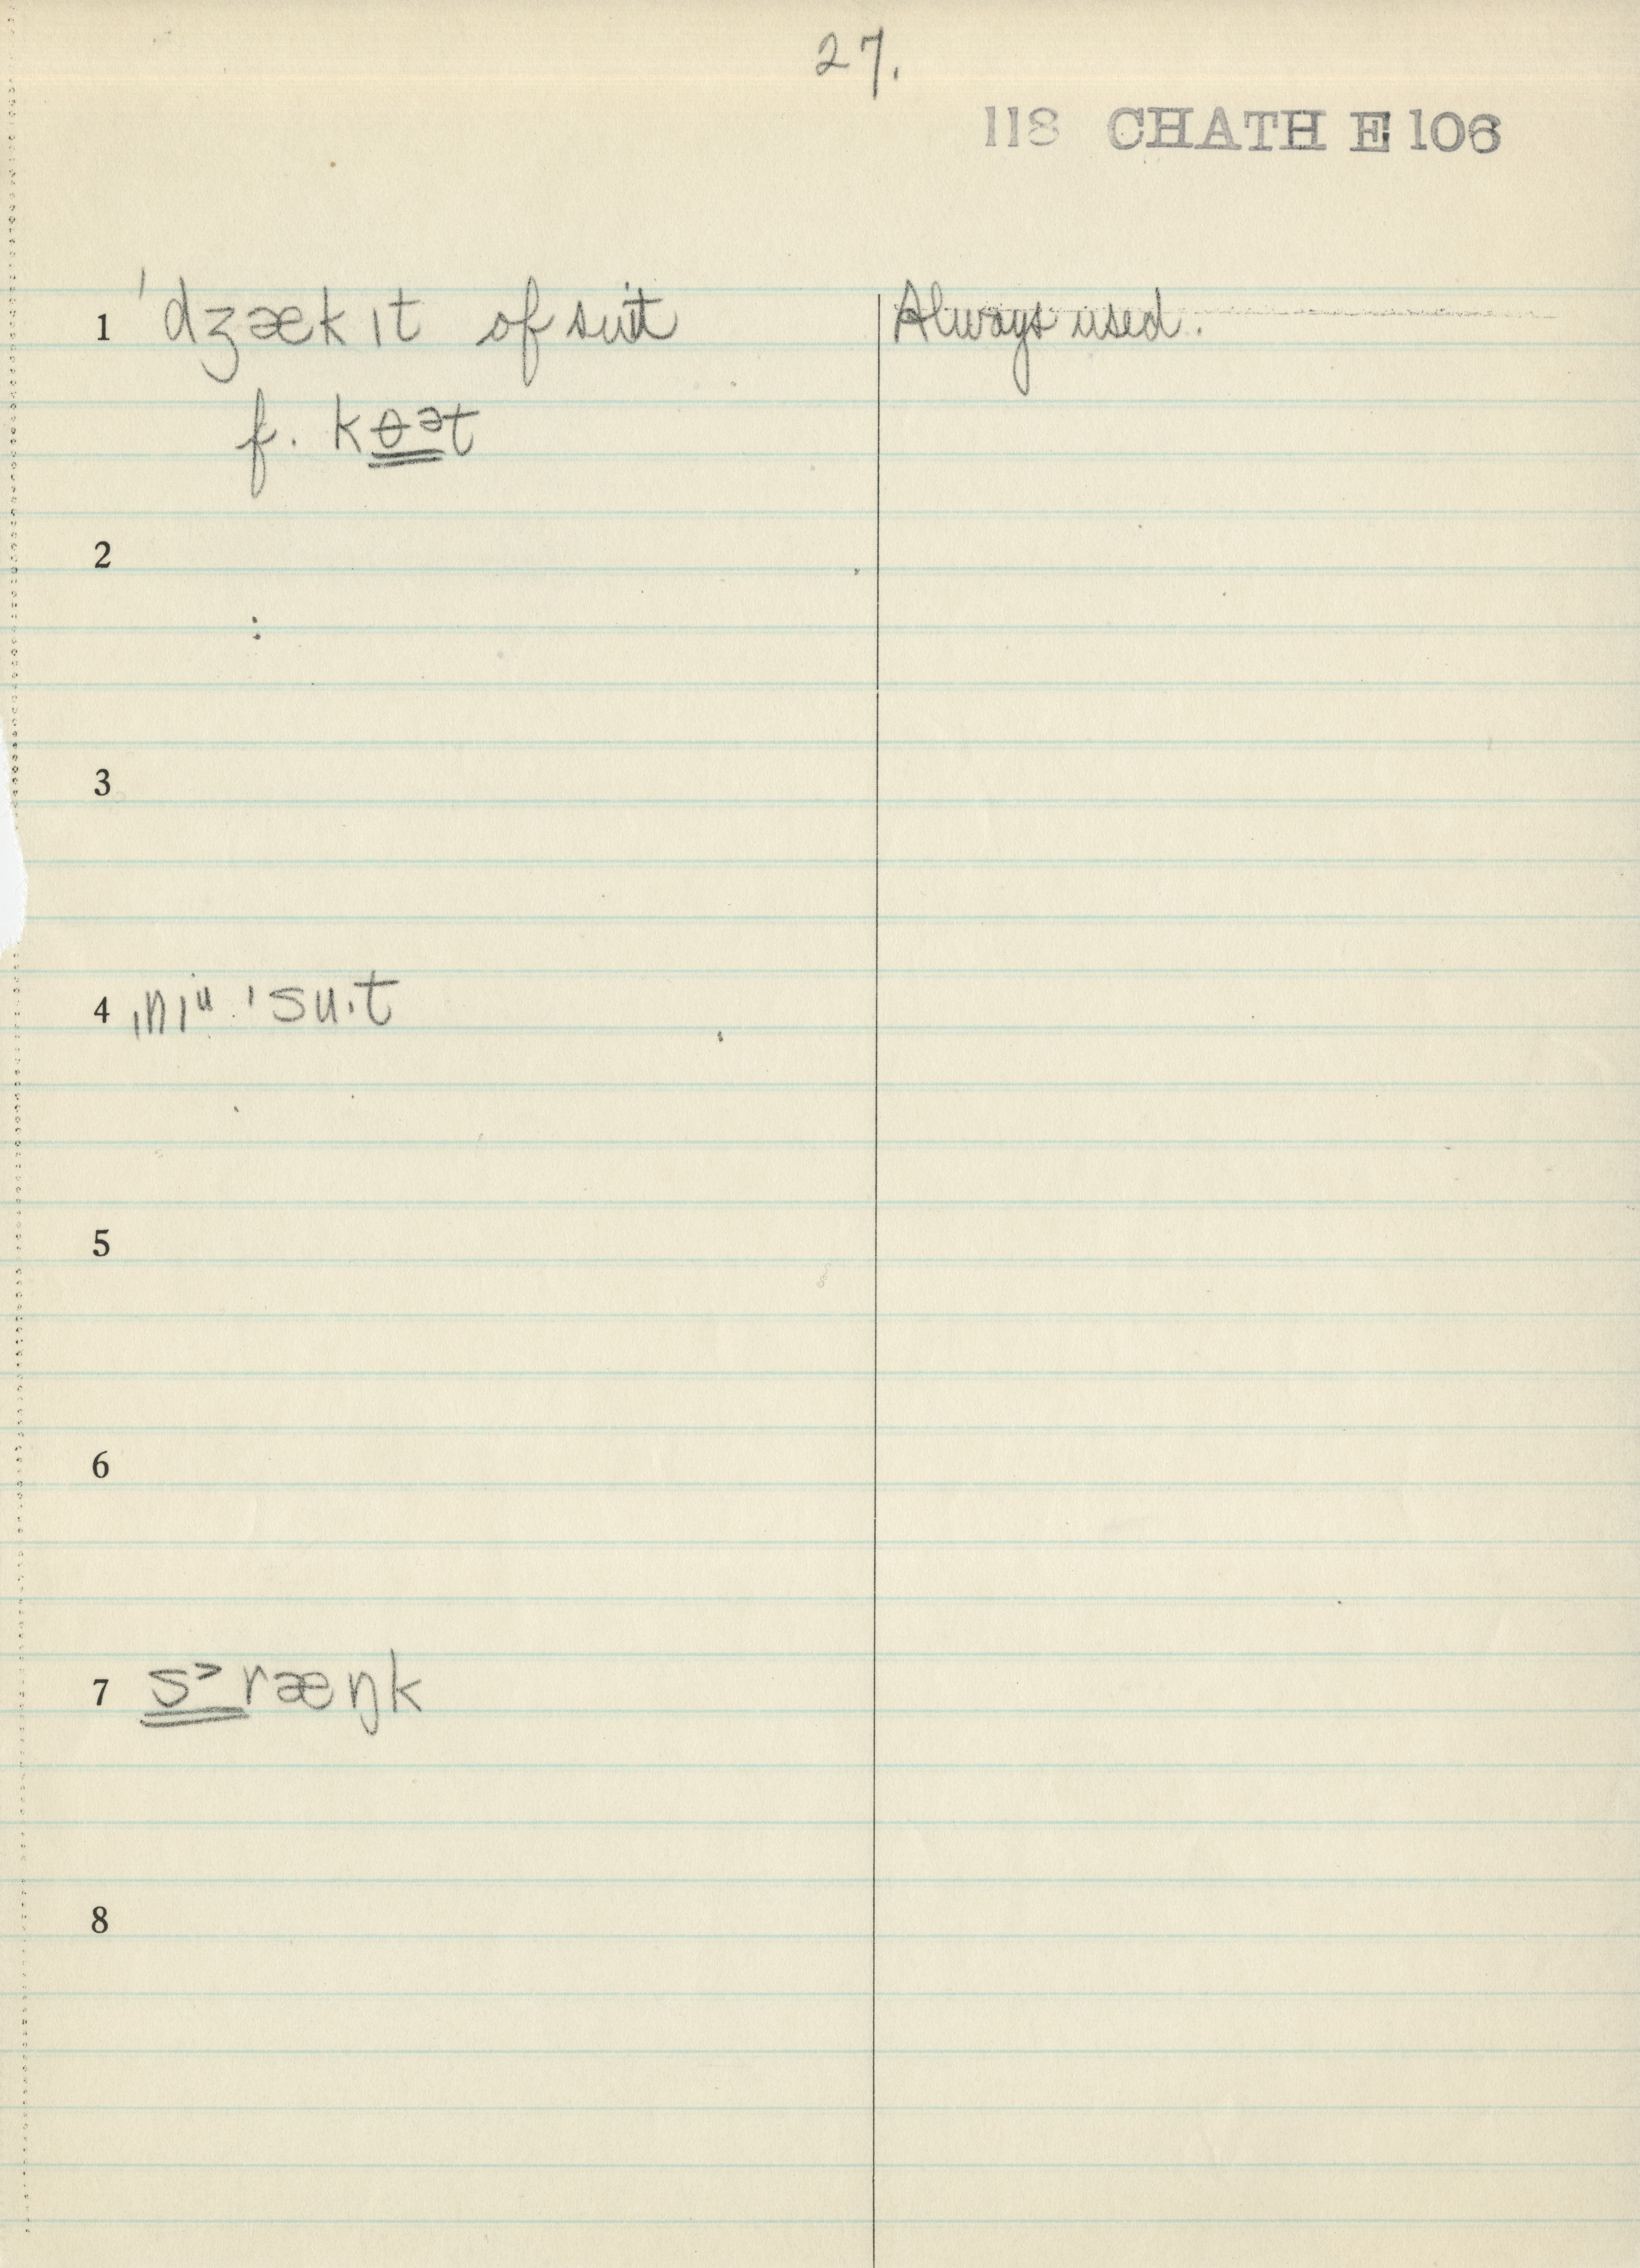 27.
118 CHATH E 106
1 ˈdʒækɪt of suit Always used.
f. kɵᵊt
2
3
4 ˌnɪᵘ ˈsu·t
5
6
7 s˃ræŋk
8